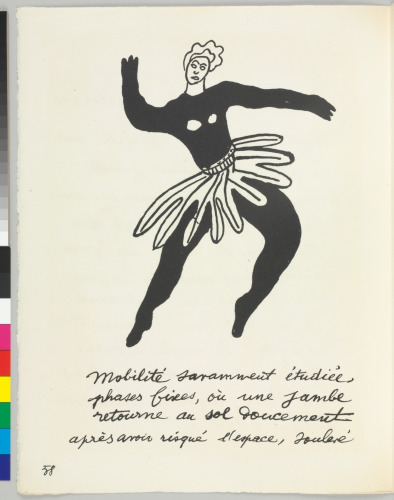 Mobilité savamment étudiée,
phases fixées, où une jambe
retourne au sol doucement
après avoir risqué l'espace, soulevé
58